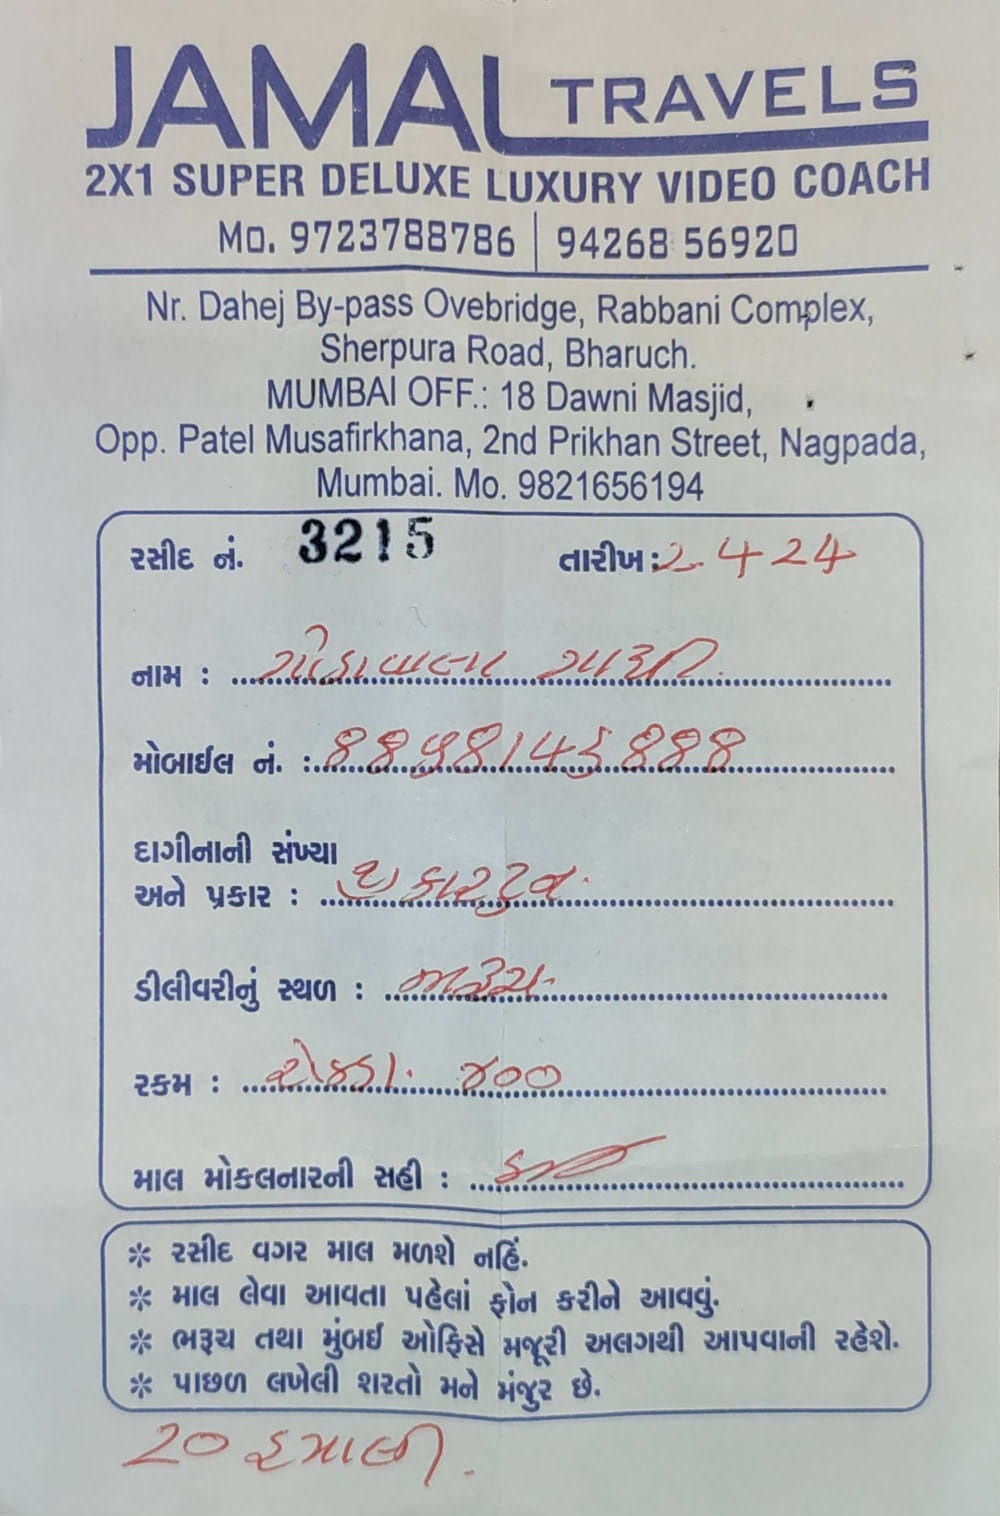 JAMAL TRAVELS
2X1 SUPER DELUXE LUXURY VIDEO COACH
Mo. 9723788786 | 94268 56920
Nr. Dahej By-pass Ovebridge, Rabbani Complex,
Sherpura Road, Bharuch.
MUMBAI OFF.: 18 Dawni Masjid,
Opp. Patel Musafirkhana, 2nd Prikhan Street, Nagpada,
Mumbai. Mo. 9821656194
રસીદ નં. 3215 તારીખ: 2.4.24
નામ :
મોબાઈલ નં. :
દાગીનાની સંખ્યા
અને પ્રકાર :
ડીલીવરીનું સ્થળ : ભરૂચ
રકમ : રોકડા ૪૦૦
માલ મોકલનારની સહી :
* રસીદ વગર માલ મળશે નહિં.
* માલ લેવા આવતા પહેલાં ફોન કરીને આવવું.
* ભરૂચ તથા મુંબઈ ઓફિસે મજૂરી અલગથી આપવાની રહેશે.
* પાછળ લખેલી શરતો મને મંજુર છે.
20 હમાલી.